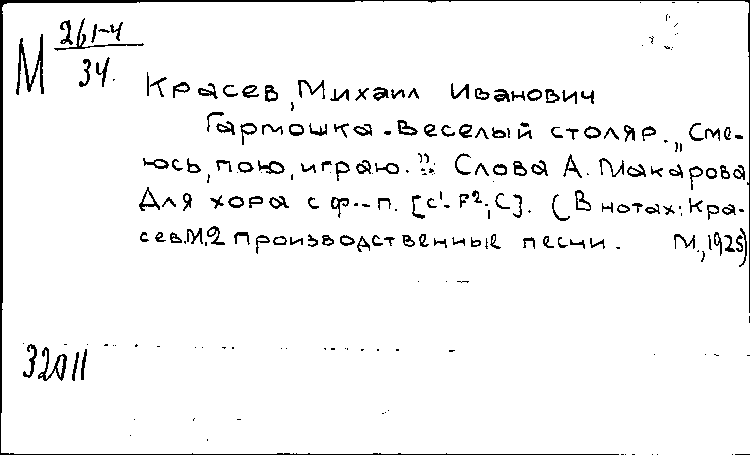 М 261-4
34.
Красев, Михаил Иванович
Гармошка-веселый столяр. „Сме-
юсь, пою, играю.": Слова А. Макарова.
Для хора с ф.-п. [c¹-F²; C]. (В нотах: Кра-
сев.М. 2 производственные песни. М., 1925)
32011